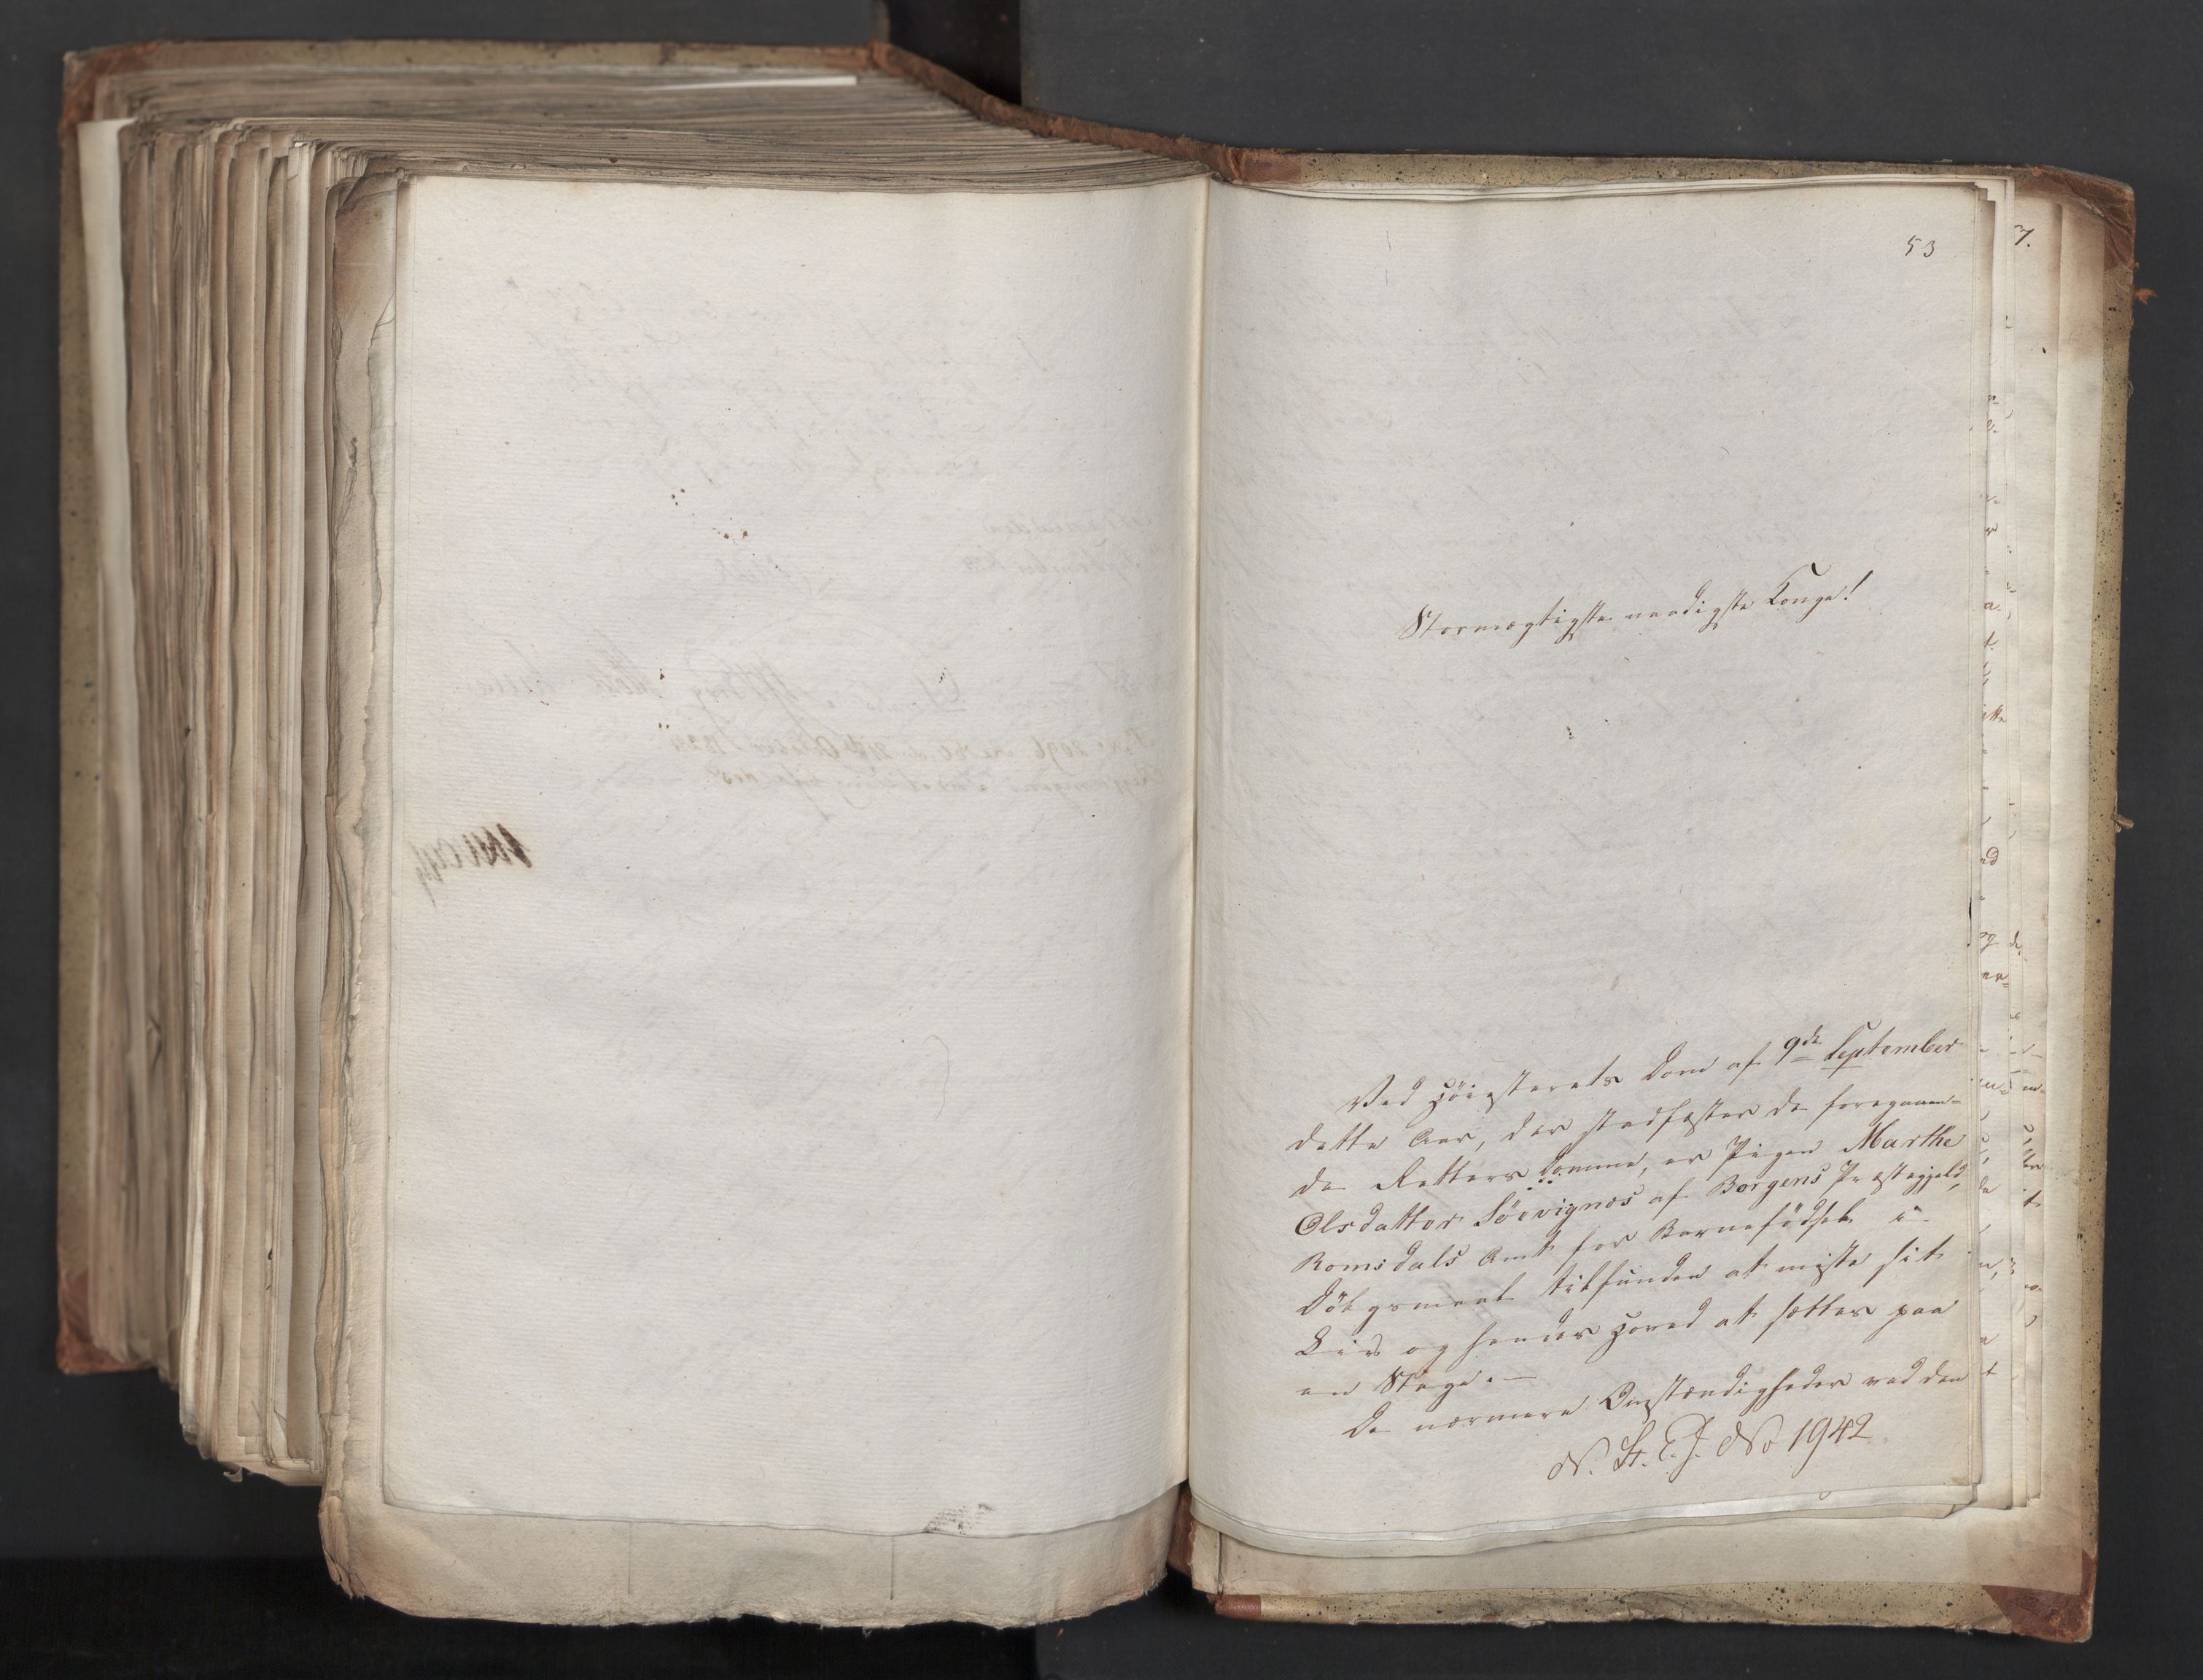 53
7.
Stormægtigste naadigste Konge!
Ved Høiesterets Dom af 9de September
dette Aar, der stadfæster de foregaaen-
de Retters Domme, er Pigen Marthe
Olsdatter Söevignæs af Borgens Præstegjeld,
Romsdals Amt for Barnefödsel i
Dölgsmaal tilfunden at miste sit
Liv og hendes Hoved at sættes paa
en Stage.—
De nærmere Omstændigheder ved den
N. St. E. J. No 1942